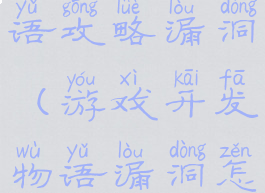 yǔ gōng lüè lòu dòng
语攻略漏洞
yóu xì kāi fā
（游戏开发
wù yǔ lòu dòng zěn
物语漏洞怎